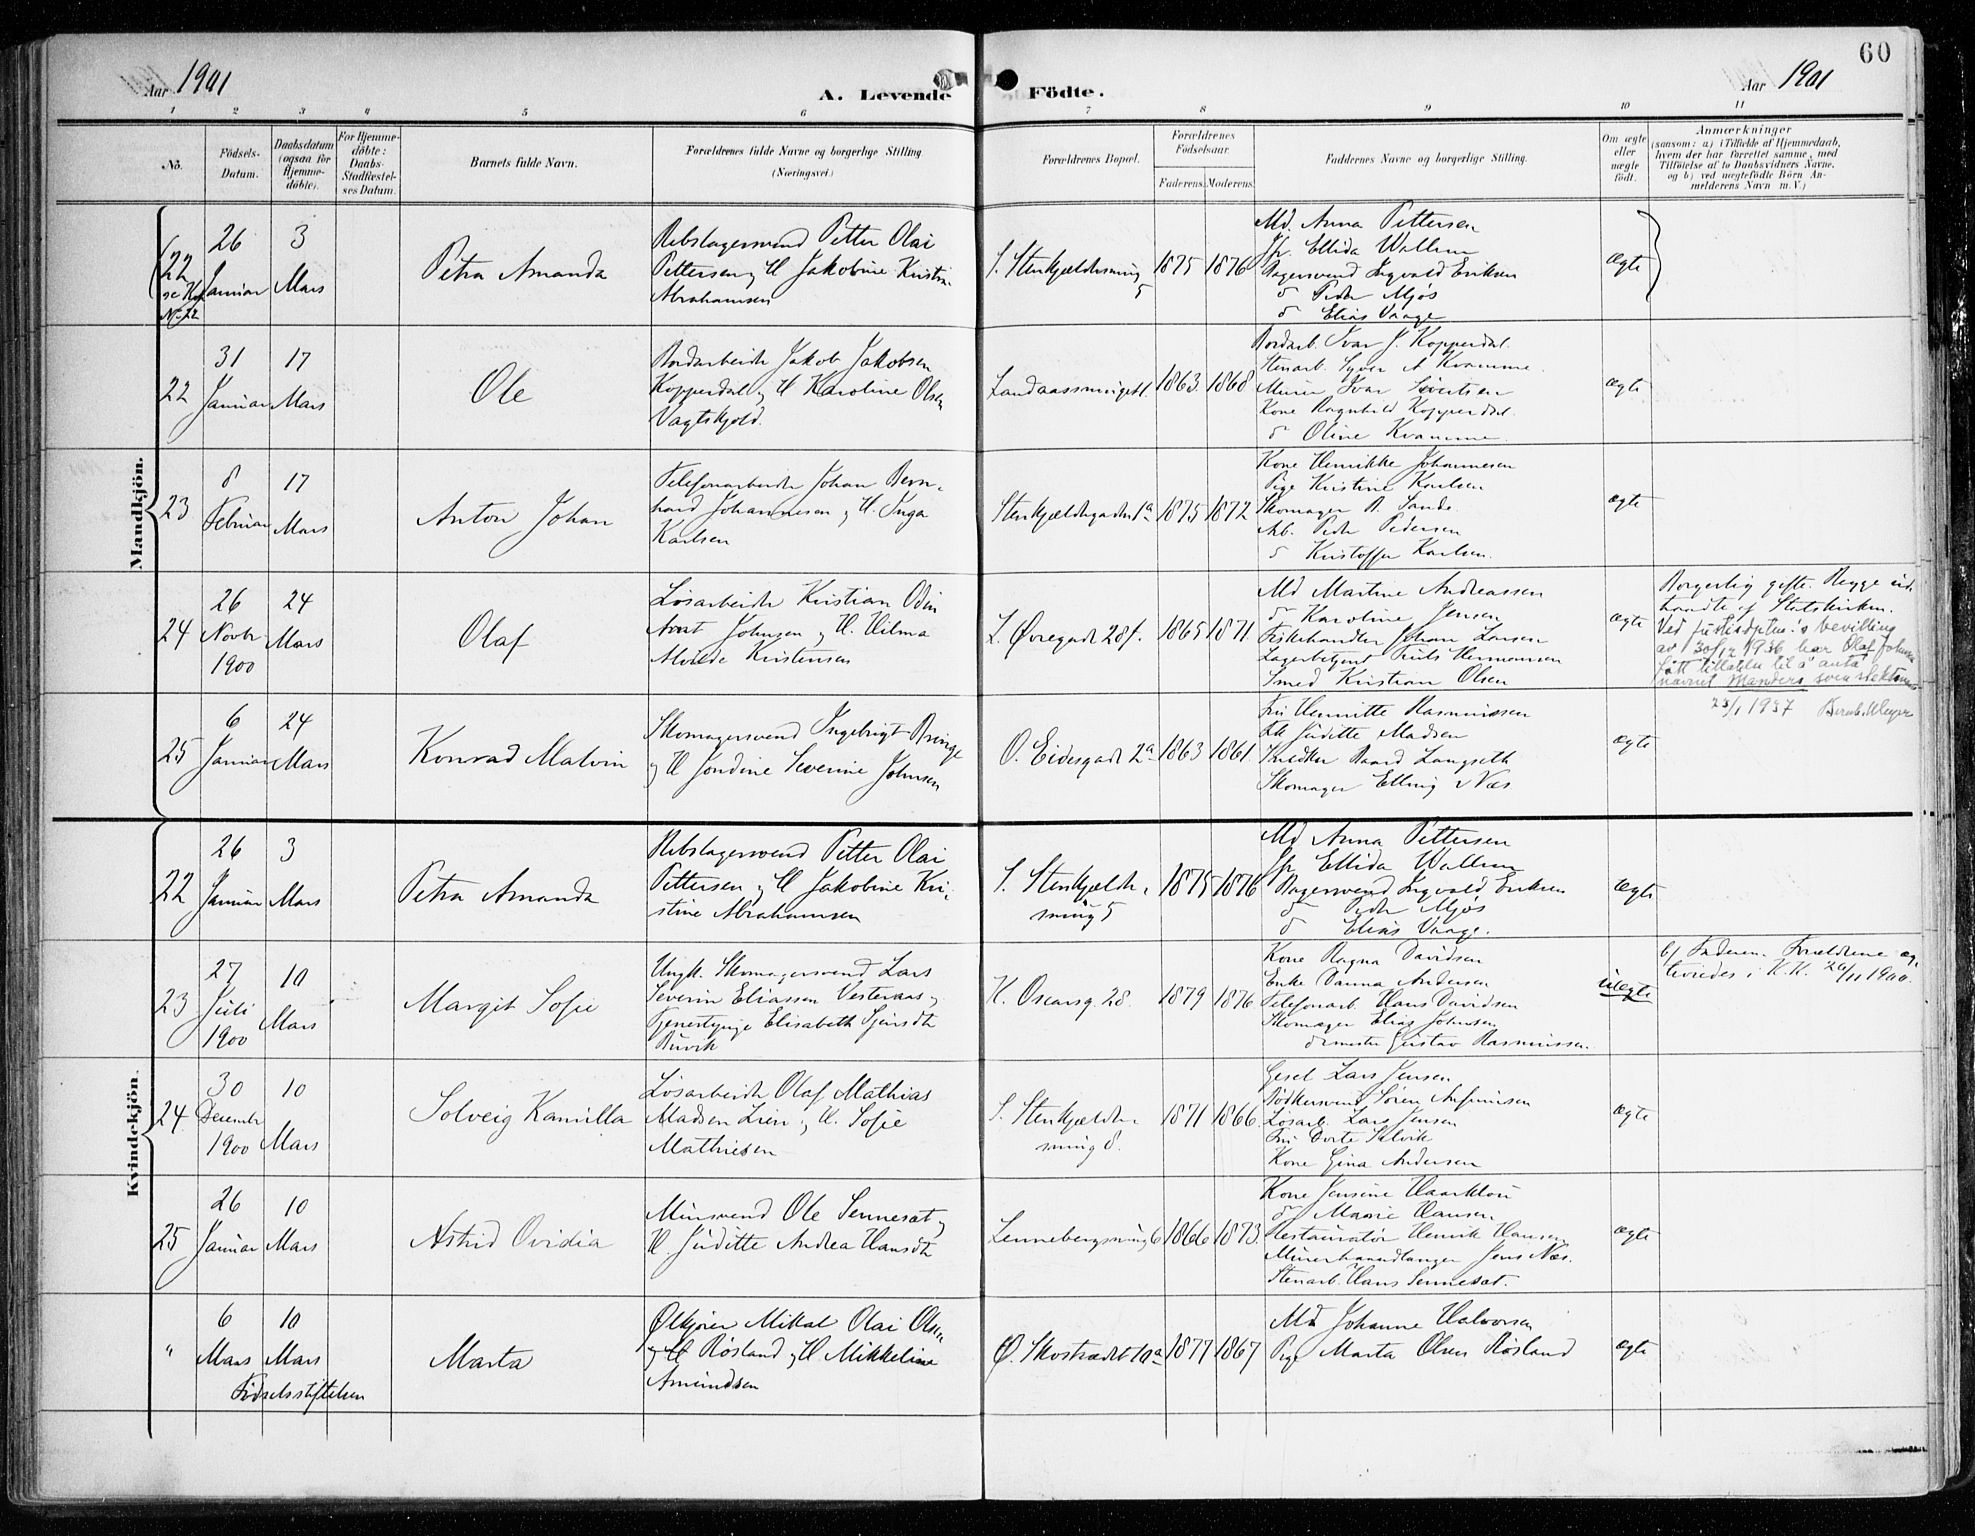 60
Aar 1901
A. Levende Födte.
Aar 1901
1 2 3 4 5 6 7 8 9 10 11
No.
Födsels-Datum.
Daabsdatum (ogsaa for Hjemme-døbte).
For Hjemme-döbte: Daabs-Stadfæstel-ses Datum.
Barnets fulde Navn.
Forældrenes fulde Navne og borgerlige Stilling. (Næringsvei.)
Forældrenes Bopæl.
Forældrenes Födselsaar.
Faderens. Moderens.
Faddernes Navne og borgerlige Stilling.
Om ægte eller uægte födt.
Anmærkninger
(saasom: a) i Tilfælde af Hjemmedaab,
hvem der har forrettet samme, med
Tilföielse af to Daabsvidners Navne,
og b) ved uægtefödte Börn An-
melderens Navn m. V.)
Mandkjön.
22
26 Januar
3 Mars
Petra Amanda
Rebslagersvend Petter Olai
Pettersen og H Jakobine Kristine
Abrahamsen
S. Stenkjældersmug 5
1875 1876
Md. Anna Pettersen
Fr. Ellida Wallum
Bagersvend Ingvald Eriksen
d Peder Mjøs
d Elias Vaage
ægte
22
31 Januar
17 Mars
Ole
Bordarbeider Jakob Jakobsen
Kopperdal og H Karoline Olsen
Vagtskjold.
Landaassvinget 1.
1863. 1868
Bordarb. Ivar J. Kopperdal.
Stenarb. Syver A Kvamme.
Murer Ivar Sivertsen
Kone Ragnhild Kopperdal.
d Oline Kvamme
ægte
23
8 Februar
17 Mars
Anton Johan
Telefonarbeider Johan Bern-
hard Johannesen og H. Inga
Karlsen
Stenkjeldergaden 1a
1875 1872
Kone Henrikke Johannesen
Pige Kristine Karlsen
Skomager R. Sande.
Arb. Peder Pedersen
d Kristoffer Karlsen.
ægte
24
26 Novbr 1900
24 Mars
Olaf
Løsarbeider Kristian Odin
Arnt Johnsen og H. Hilma
Alvilde Kristensen
L. Øvregade 28 f.
1865 1871.
Md Martine Andreassen
d Karoline Jensen
Fiskehandler Johan Larsen
Lagerbetjent Truls Hermansen
Smed Kristian Olsen
ægte
Borgerlig gifte. Begge ud-
traadte af Statskirken.
Ved justisdptm.'s bevilling
av 30/12 1936 har Olaf Johnsen
fått tillatelse til å anta
navnet Manders som slektsnavn
23/1 1937 Bernh. Meyer
25
6 Januar
24 Mars
Konrad Malvin
Skomagersvend Ingebrigt Bringe
og H Jondine Severine Johnsen
O. Eidesgade 2a
1863 1861.
Fru Henriette Rasmussen
Juditte Madsen
Snedker Baard Langseth
Skomager Elling Næs
ægte
Kvindekjön.
22
26 Januar
3 Mars
Petra Amanda
Rebslagersvend Petter Olai
Pettersen og H Jakobine Kri-
stine Abrahamsen
S. Stenkjælder-
smug 5
1875 1876
Md Anna Pettersen
Fr Ellida Wallum
Bagersvend Ingvald Eriksen
d Peder Mjøs
d Elias Vaage.
ægte
23
27 Juli 1900
10 Mars
Margit Sofie
Ungk. Skomagersvend Lars
Severin Eliassen Vesteraas og
Tjenestepige Elisabeth Sjursdtr
Buvik
K. Oscarsg. 28.
1879 1876
Kone Ragna Davidsen
Enke Danna Andersen
Telefonarb. Hans Davidsen
Skomager Elias Johnsen
d mester Gustav Rasmussen.
uægte
b) Faderen. Forældrene æg-
teviedes i K.K. 20/11 1900.
24
30 December 1900
10 Mars
Solveig Kamilla
Løsarbeider Olaf Mathias
Madsen Lien og H. Sofie
Mathiesen
S. Stenkjælder-
smug 8.
1871 1866
Gesel Lars Jensen
Bødkersvend Søren Asfinnsen
Løsarb. Lars Jensen
Fru Dorte Selvik
Kone Gina Andersen
ægte
25
26 Januar
10 Mars
Astrid Ovidia
Mursvend Ole Sennesæt og
H. Juditte Andrea Hansdtr
Lennebergsmug 6
1866 1873.
Kone Jensine Haarklou
d Marie Hansen
Restauratør Henrik Hansen
Murerhaandlanger Jens Næs.
Stenarb. Hans Sennesæt.
ægte
"
6 Mars
10 Mars
Fødselsstiftelsen
Marta
Ølkjører Mikal Olai Olsen
Røsland og H Mikkeline
Amundsen
Ø. Skostrædet 10a
1877 1867
Md Johanne Halvorsen
Pige Marta Olsen Røsland
ægte